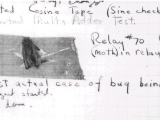 ted Cosine Tape (Sine check
ted Multi Adder Test.
Relay #70
(moth) in relay
st actual case of bug being
started.
down.